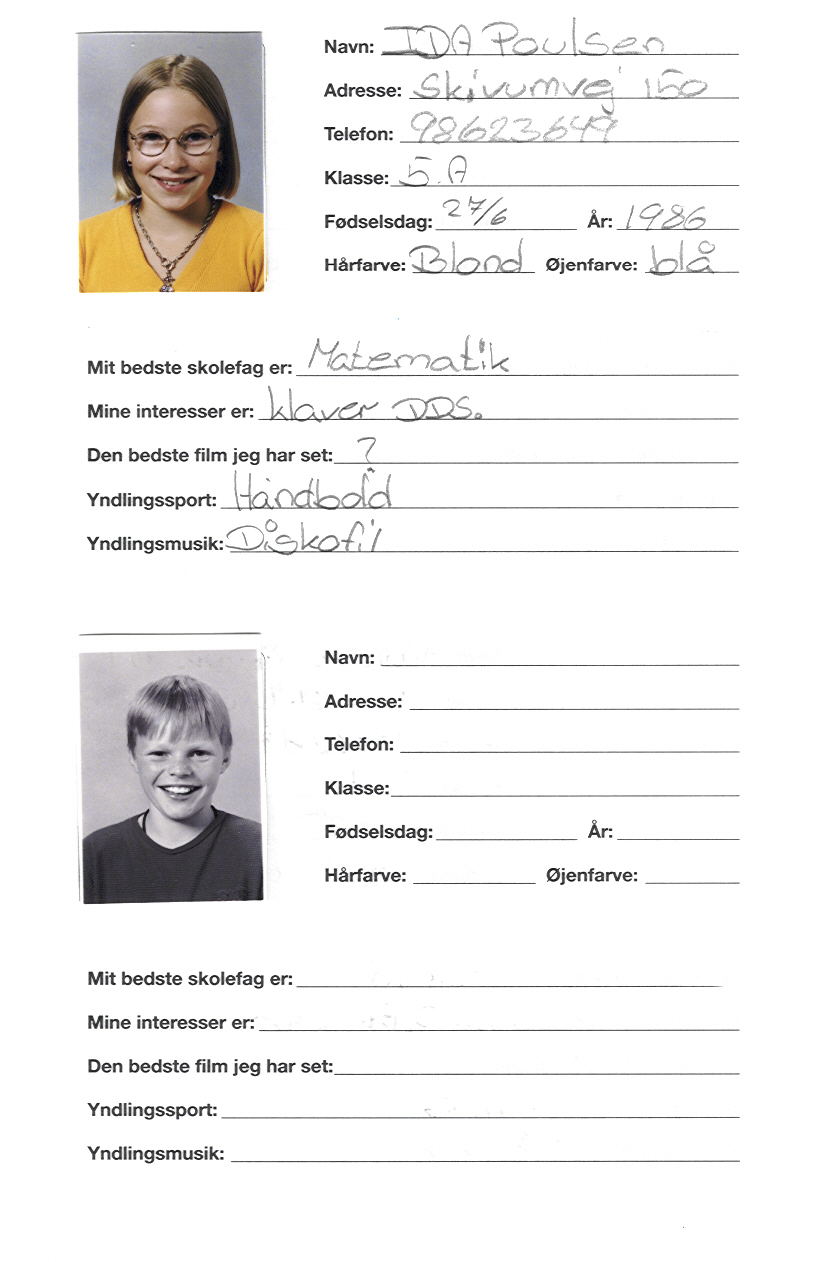 Navn: IDA Poulsen
Adresse: Skivumvej 150
Telefon: 98623649
Klasse: 5.A
Fødselsdag: 27/6 År: 1986
Hårfarve: Blond Øjenfarve: blå
Mit bedste skolefag er: Matematik
Mine interesser er: klaver DDS.
Den bedste film jeg har set: ?
Yndlingssport: Håndbold
Yndlingsmusik: Diskofil
Navn:
Adresse:
Telefon:
Klasse:
Fødselsdag: År:
Hårfarve: Øjenfarve:
Mit bedste skolefag er:
Mine interesser er:
Den bedste film jeg har set:
Yndlingssport:
Yndlingsmusik: